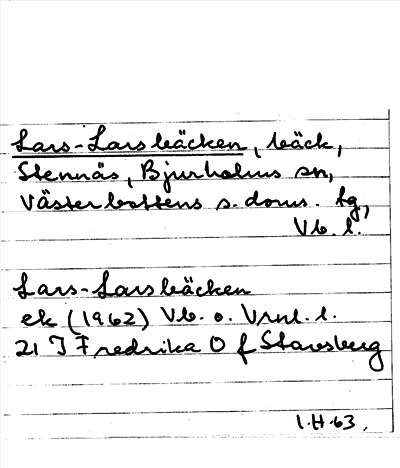 Lars-Larsbäcken, bäck,
Stennäs, Bjurholms sn,
Västerbottens s. doms. tg,
Vb. l.
Lars-Larsbäcken
ek (1962) Vb. o. Vrnl. l.
21 J Fredrika O f Starsberg
1.H.63.